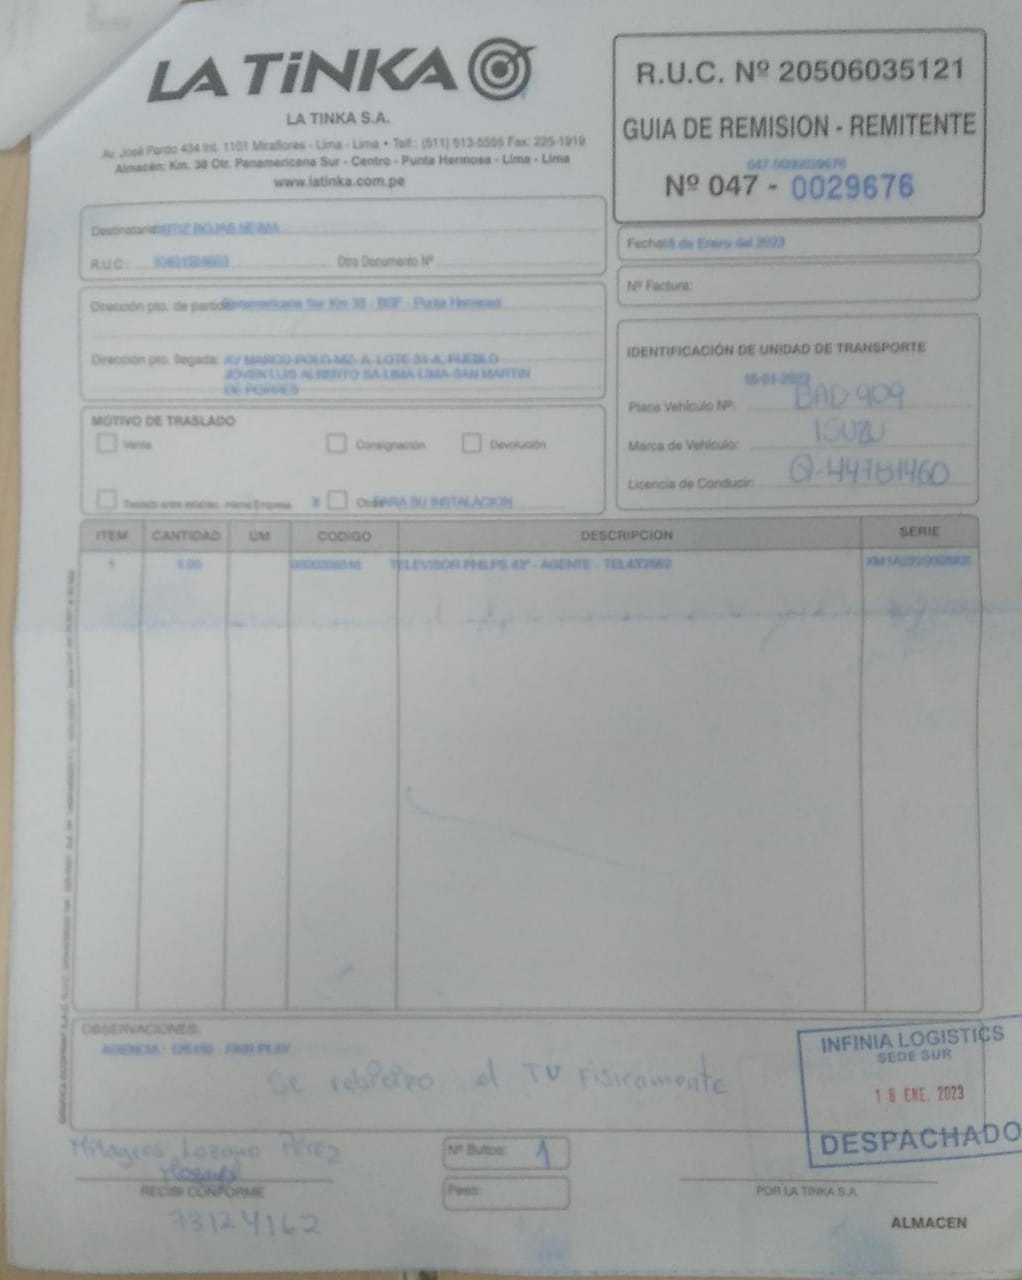 LA TiNKA
LA TINKA S.A.
Av. José Pardo 434 Int. 1101 Miraflores - Lima - Lima • Telf.: (511) 513-5555 Fax: 225-1919
Almacén: Km. 38 Otr. Panamericana Sur - Centro - Punta Hermosa - Lima - Lima
www.latinka.com.pe
R.U.C. Nº 20506035121
GUIA DE REMISION - REMITENTE
047-0000029676
Nº 047 - 0029676
Destinatario: ROJAS
R.U.C.
Otro Documento Nº
Fecha: de Enero del 2023
Nº Factura:
Dirección pto. de partida: Panamericana Sur Km 38 - - Punta Hermosa
Dirección pto. llegada: AV MARCO POLO MZ. A, LOTE 34-A, PUEBLO
JOVEN LUIS ALBERTO SA-LIMA-LIMA-SAN MARTIN
DE PORRES
IDENTIFICACIÓN DE UNIDAD DE TRANSPORTE
18-01-2023
Placa Vehículo Nº: BAD 909
Marca de Vehículo: ISUZU
Licencia de Conducir: Q-44781460
MOTIVO DE TRASLADO
Venta
Consignación
Devolución
Traslado entre establec. misma Empresa
X
Otros PARA SU INSTALACION
ITEM CANTIDAD UM CODIGO DESCRIPCION SERIE
1 1.00 TELEVISOR PHILPS 43" - AGENTE -
OBSERVACIONES:
AGENCIA - - FAIR PLAY
Se recibe el TV Fisicamente
INFINIA LOGISTICS
SEDE SUR
18 ENE. 2023
DESPACHADO
Milagros Lozano Pérez
RECIBI CONFORME
73124162
Nº Bultos: 1
Peso:
POR LA TINKA S.A.
ALMACEN